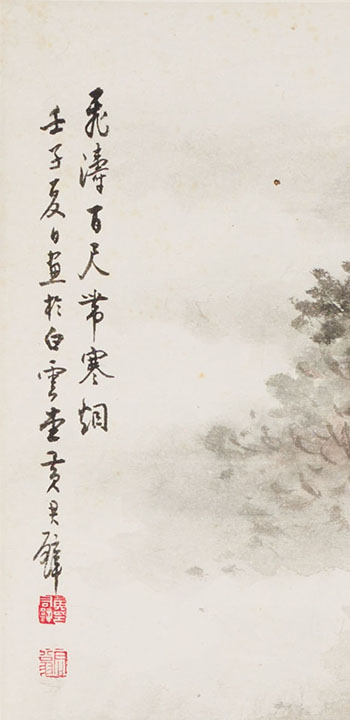 飛濤百尺帶寒烟
壬子夏日畫於白雲堂黃君璧